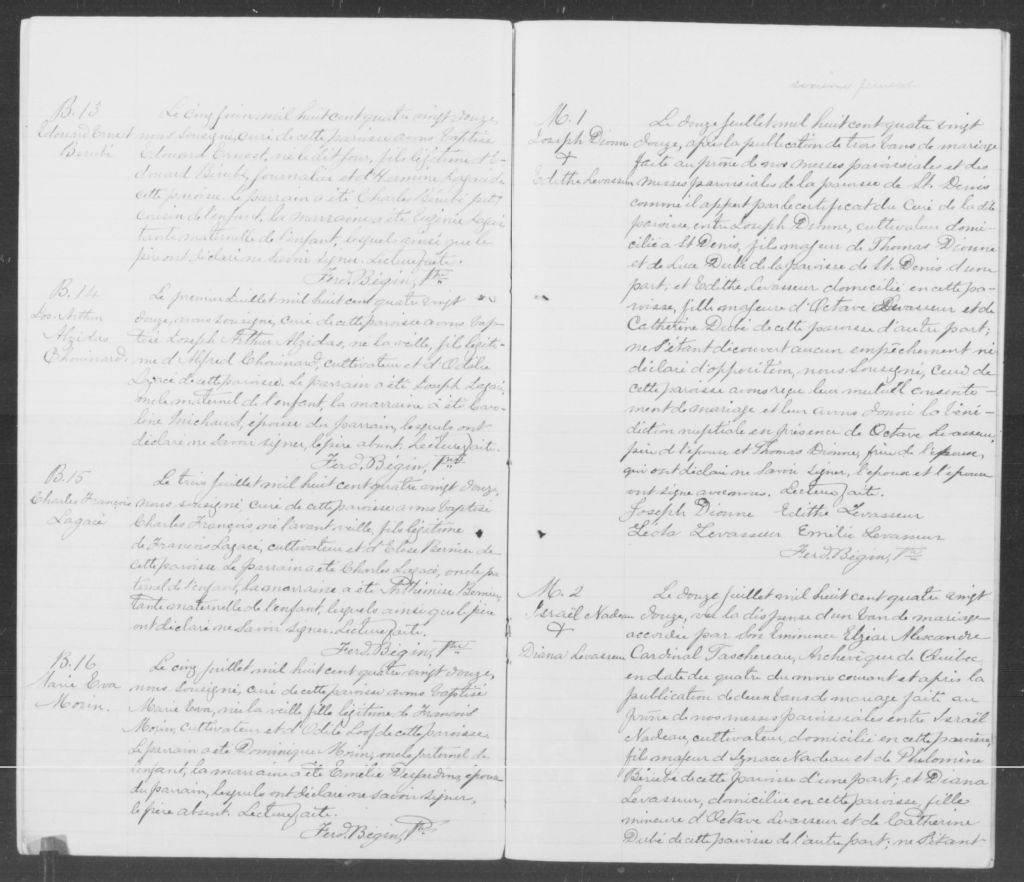 B. 13
Edouard Ernest
Berubé
Le cinq juin, mil huit cent quatre vingt douze,
nous soussigné, curé de cette paroisse avons baptisé
Edouard Ernest, né le dit jour, fils légitime d'E-
douard Bérubé, journalier et d'Hermine Lagacé de
cette paroisse. Le parrain a été Charles Bérubé petit
cousin de l'enfant, la marraine a été Eugénie Lagacé
tante maternelle de l'enfant, lesquels ainsi que le
père ont déclaré ne savoir signer. Lecture faite.
Ferd. Bégin, Ptre
B. 14
Jos. Arthur
Alzidas
Chouinard.
Le premier Juillet mil huit cent quatre vingt
douze, nous soussigné, curé de cette paroisse avons bap-
tisé Joseph Arthur Alzidas, né la veille, fils légiti-
me d'Alfred Chouinard, cultivateur et d'Odélie
Lagacé de cette paroisse. Le parrain a été Joseph Lagacé,
oncle maternel de l'enfant, la marraine a été Caro-
line Michaud, épouse du parrain, lesquels ont
déclaré ne savoir signer, le père absent. Lecture faite.
Ferd. Bégin, Ptre
B. 15
Charles François
Lagacé
Le trois juillet mil huit cent quatre vingt douze,
nous soussigné, curé de cette paroisse avons baptisé
Charles François, né l'avant veille, fils légitime
de Francois Lagacé, cultivateur et d'Elise Bernier de
cette paroisse. Le parrain a été Charles Lagacé, oncle pa-
ternel de l'enfant, la marraine a été Philhimise Bernier,
tante maternelle de l'enfant, lesquels ainsi que le père
ont déclaré ne savoir signer. Lecture faite.
Ferd. Bégin, Ptre
B. 16
Marie Eva
Morin.
Le cinq juillet mil huit cent quatre vingt douze,
nous soussigné, curé de cette paroisse avons baptisé
Marie Eva, née la veille, fille légitime de François
Morin, cultivateur et d'Odile Loof de cette paroisse.
Le parrain a été Dominique Morin, oncle paternel de
l'enfant, la marraine a été Emélie Desjardins, épouse
du parrain, lesquels ont déclaré ne savoir signer,
le père absent. Lecture faite.
Ferd. Bégin, Ptre
M. 1
Joseph Dionne
+
Edithe Levasseur
Le douze juillet, mil huit cent quatre vingt
douze, après la publication de trois bans de mariage
faite au prône de nos messes paroissiales et des
messes paroissiales de la paroisse de St. Denis
comme il appert par le certificat du Curé de la dite
paroisse, entre Joseph Dionne, cultivateur domi-
cilié a St Denis, fils majeur de Thomas Dionne
et de Luce Dubé de la paroisse de St. Denis d'une
part; et Edithe Levasseur domiciliée en cette pa-
roisse, fille majeure d'Octave Levasseur et de
Catherine Dubé de cette paroisse d'autre part;
ne s'étant découvert aucun empêchement ni
déclaré d'opposition, nous soussigné, Curé de
cette paroisse avons reçu leur mutuel consente-
ment de mariage et leur avons donné la béné-
diction nuptiale en présence de Octave Levasseur,
père de l'épouse et Thomas Dionne, père de l'époux,
qui ont déclaré ne savoir signer, l'époux et l'épouse
ont signé avec nous. Lecture faite.
Joseph Dionne Edithe Levasseur
Léda Levasseur Emélie Levasseur
Ferd. Bégin, Ptre
M. 2
Israël Nadeau
+
Diana Levasseur
Le douze juillet mil huit cent quatre vingt
douze, vu la dispense d'un ban de mariage
accordée par Son Eminence Elzéar Alexandre
Cardinal Taschereau, Archevêque de Québec,
en date du quatre du mois courant et après la
publication de deux bans de mariage faite au
prône de nos messes paroissiales entre Israël
Nadeau, cultivateur, domicilié en cette paroisse,
fils majeur d'Ignace Nadeau et de Philomène
Bérubé de cette paroisse d'une part; et Diana
Levasseur, domiciliée en cette paroisse, fille
mineure d'Octave Levasseur et de Catherine
Dubé de cette paroisse de l'autre part; ne s'étant